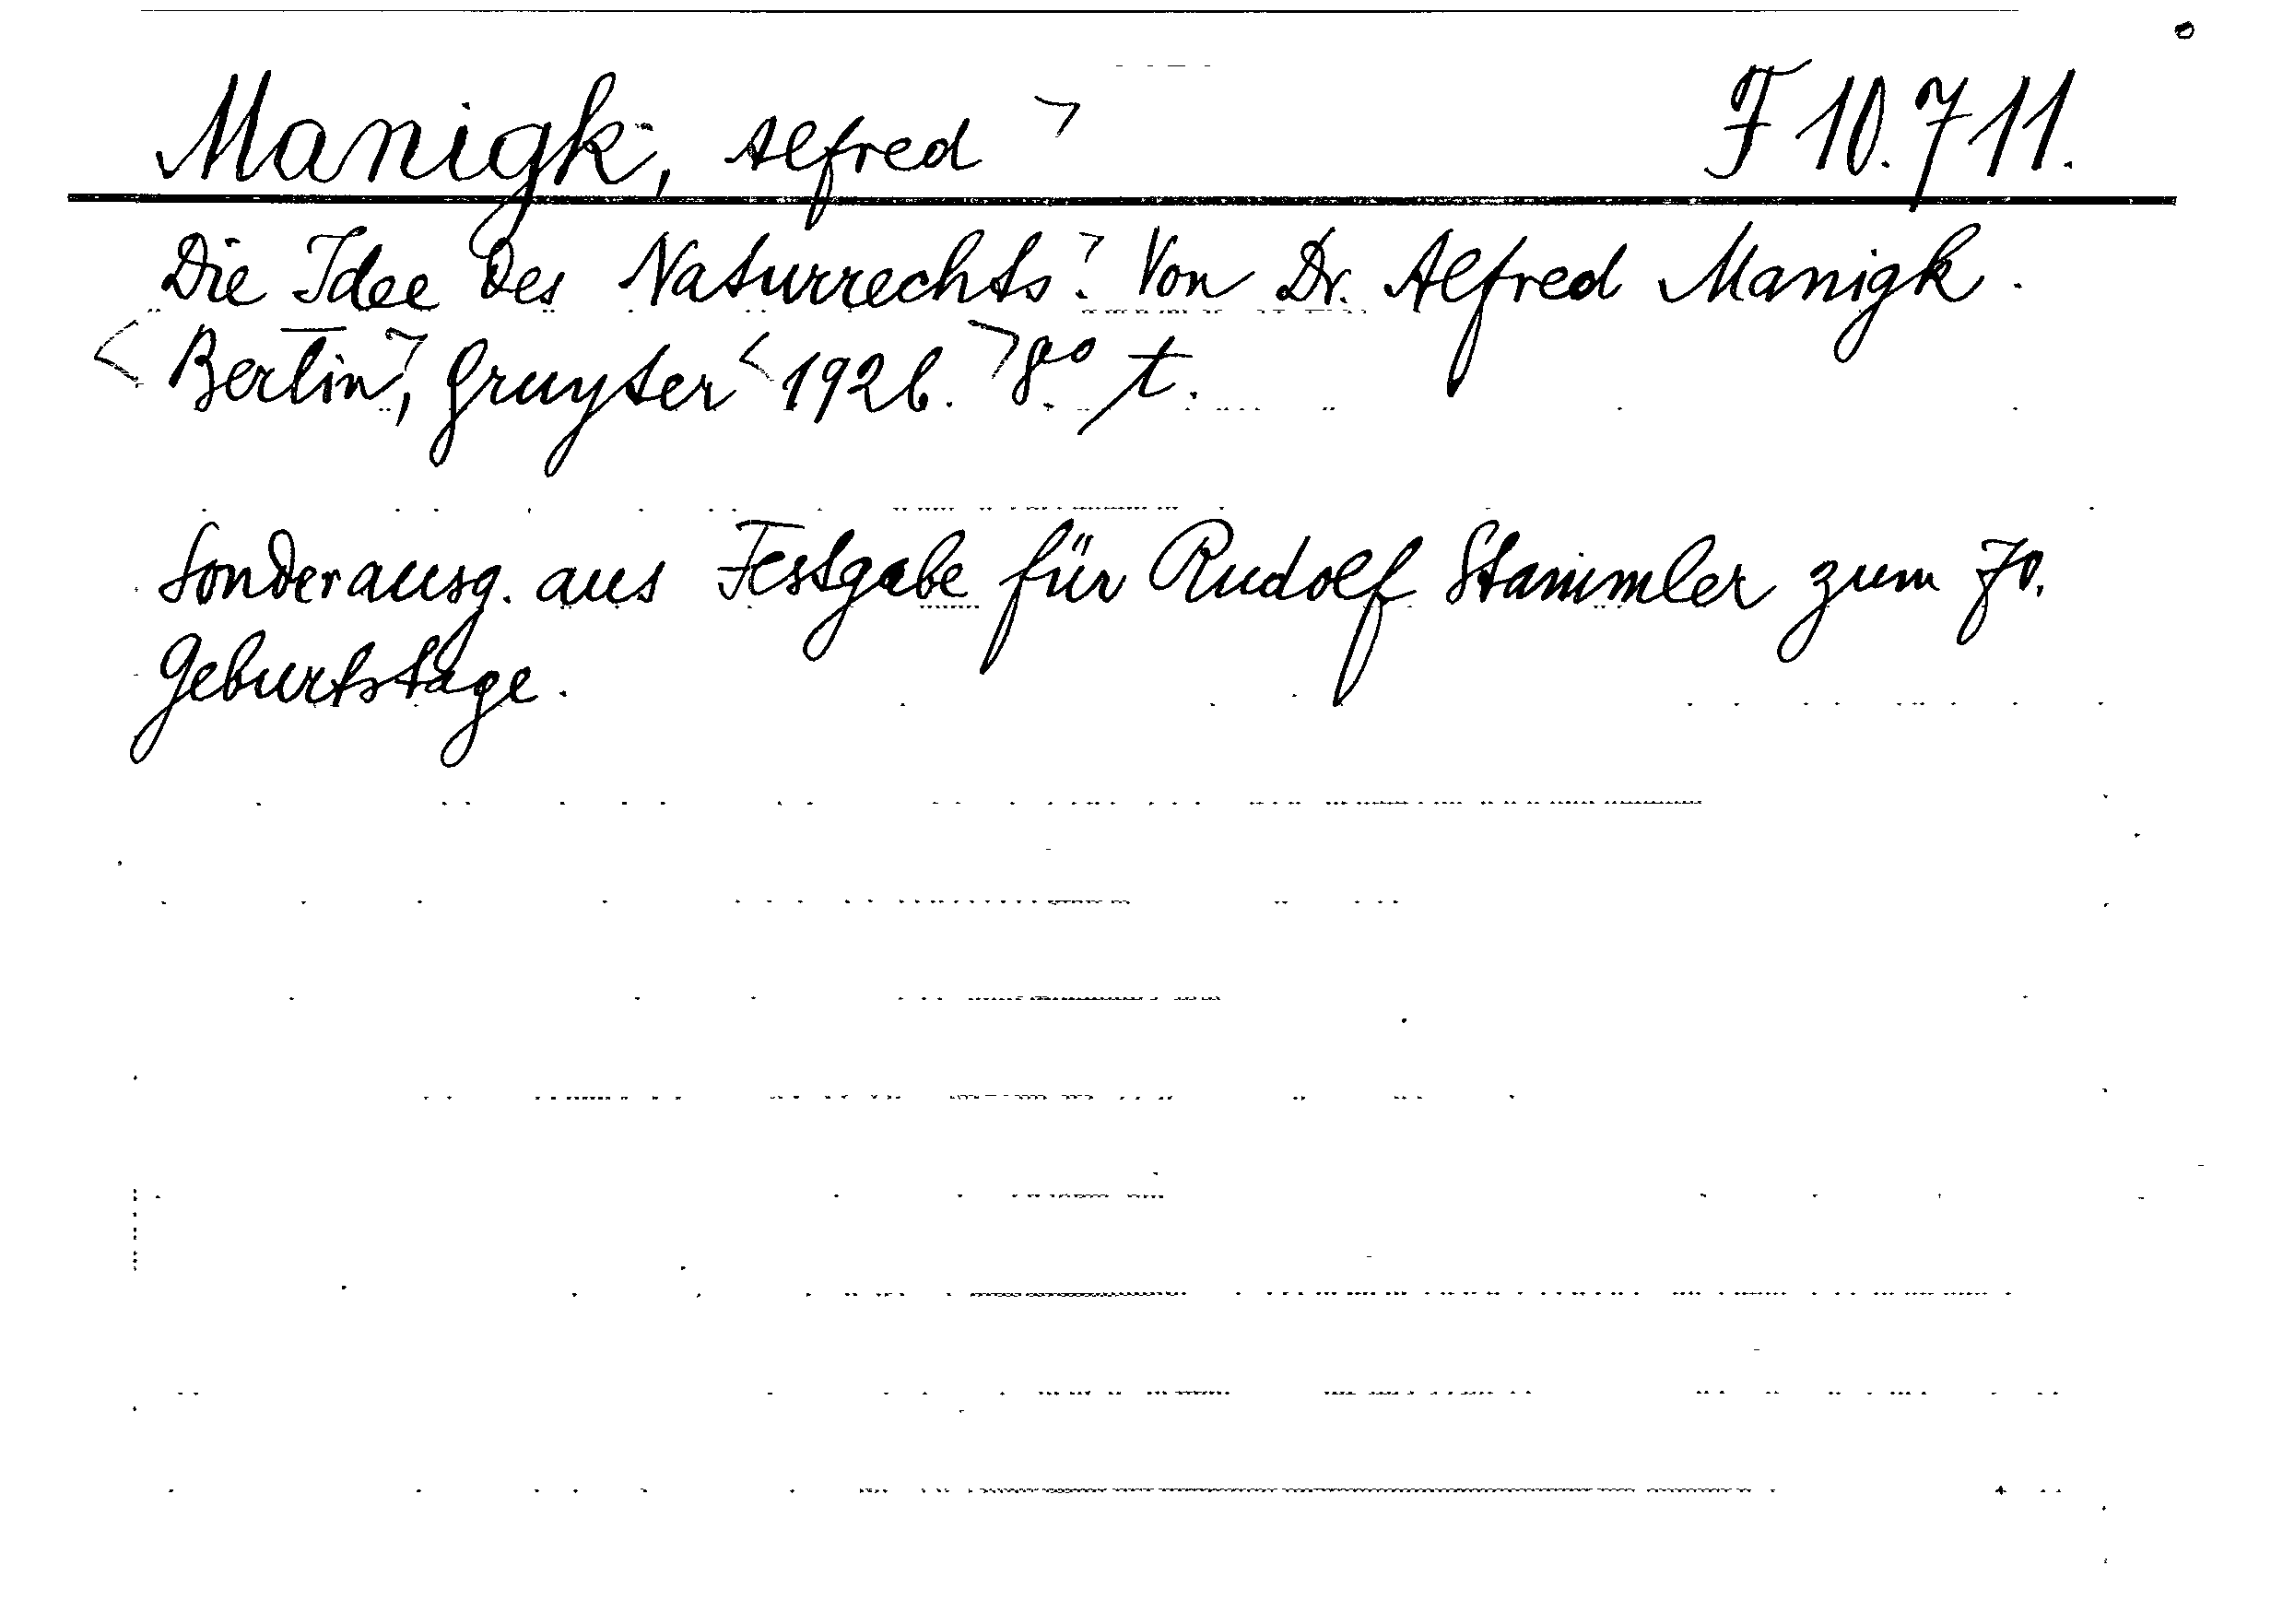 Manigk, Alfred F 10.711.
Die Idee des Naturrechts. Von Dr. Alfred Manigk.
Berlin, Gruyter 1926. 8° t.
Sonderausg. aus Festgabe für Rudolf Stammler zum 70.
Geburtstage.